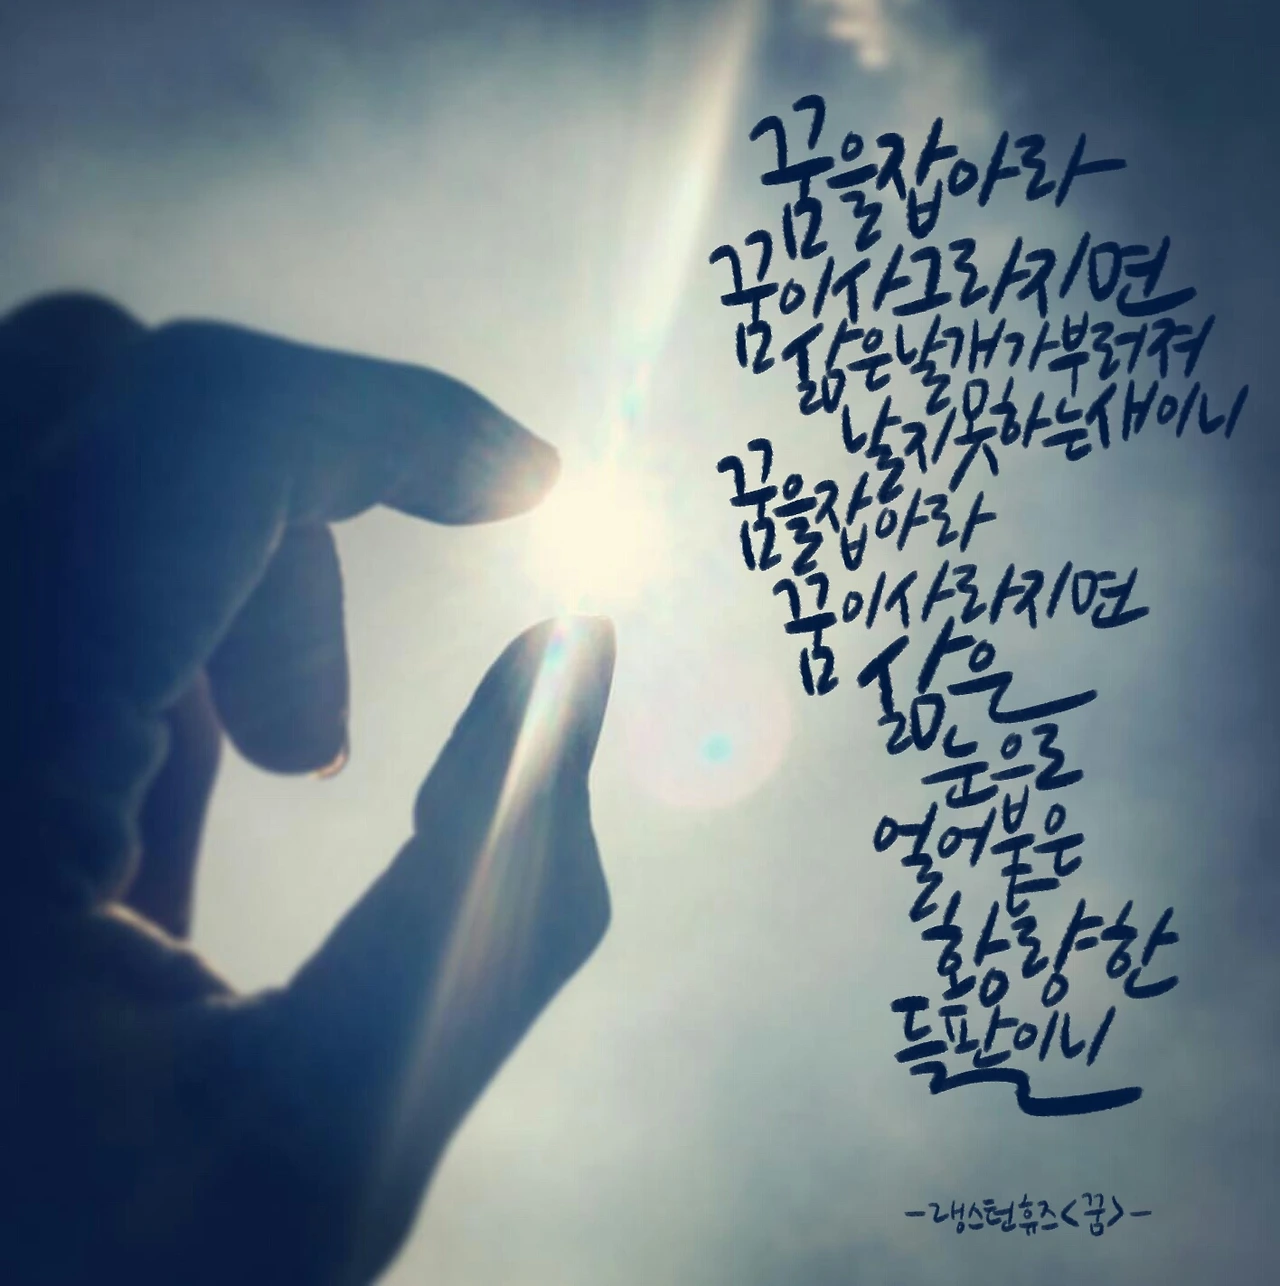 꿈을잡아라
꿈이사그라지면
삶은날개가부러져
날지못하는새이니
꿈을잡아라
꿈이사라지면
삶은
눈으로
얼어붙은
황량한
들판이니
-랭스턴휴즈<꿈>-